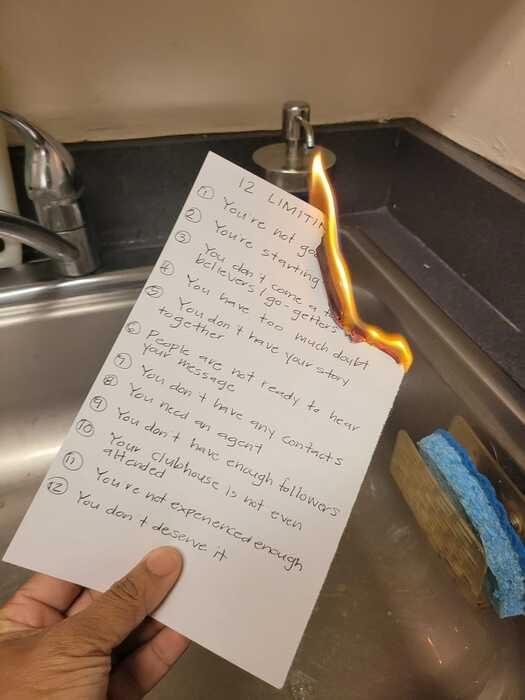 12 LIMITIN
① You're not go
② You're starting
③ You don't come a
believers/go-getters
④ You have too much doubt
⑤ You don't have your story
together
⑥ People are not ready to hear
your message
⑦ You don't have any contacts
⑧ You need an agent
⑨ You don't have enough followers
⑩ Your clubhouse is not even
attended
⑪ You're not experienced enough
⑫ You don't deserve it